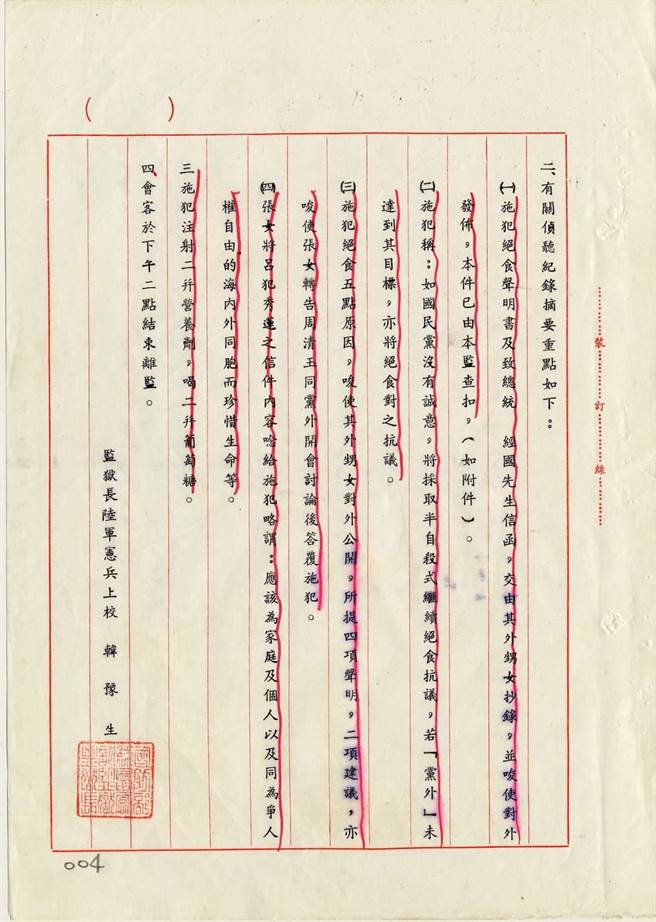 二、有關偵聽紀錄摘要重點如下：
㈠施犯絕食聲明書及致總統　經國先生信函，交由其外甥女抄錄，並唆使對外
發佈，本件已由本監查扣，（如附件）。
㈡施犯稱：如國民黨沒有誠意，將採取半自殺式繼續絕食抗議，若「黨外」未
達到其目標，亦將絕食對之抗議。
㈢施犯絕食五點原因，唆使其外甥女對外公開，所提四項聲明，二項建議，亦
唆使張女轉告周清玉同黨外開會討論後答覆施犯。
㈣張女將呂犯秀蓮之信件內容唸給施犯略謂：應該為家庭及個人以及同為爭人
權自由的海內外同胞而珍惜生命等。
三、施犯注射二瓶營養劑，喝二瓶葡萄糖。
四、會客於下午二點結束離監。
監獄長陸軍憲兵上校　韓豫生
裝訂線
004